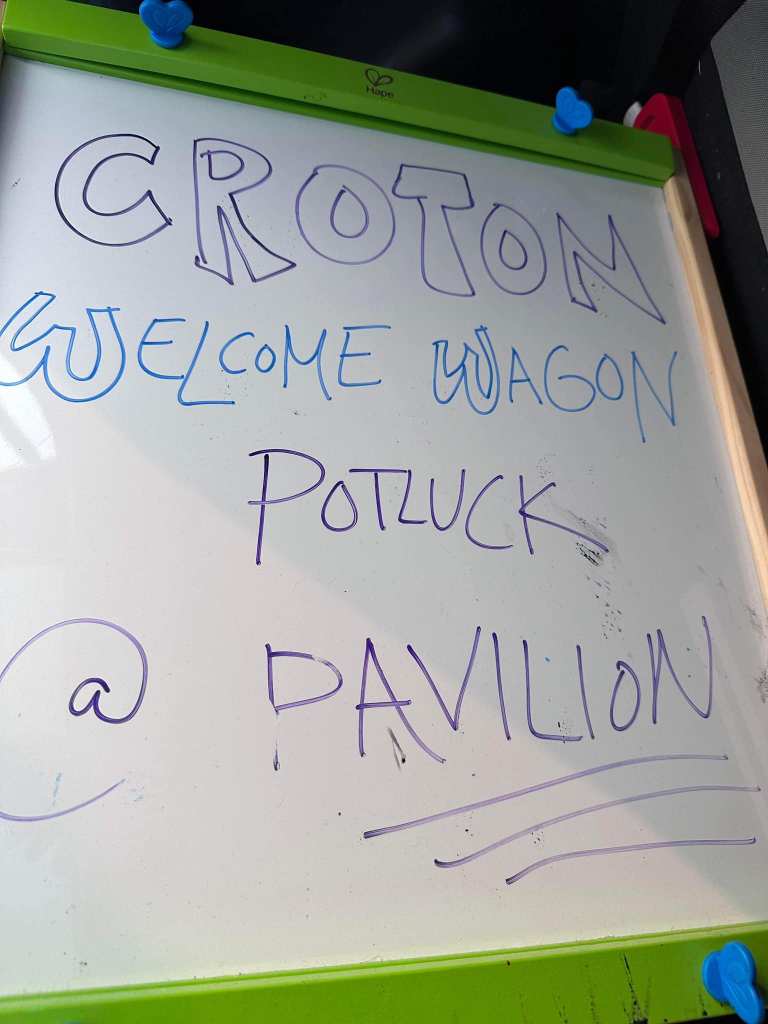 Hape
CROTON
WELCOME WAGON
POTLUCK
@ PAVILION